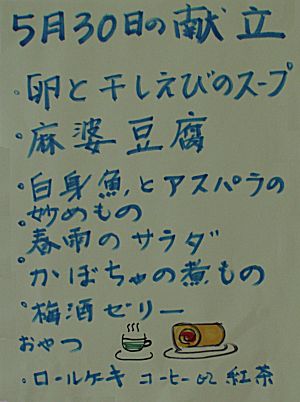 5月30日の献立
・卵と干しえびのスープ
・麻婆豆腐
・白身魚とアスパラの
炒めもの
・春雨のサラダ
・かぼちゃの煮もの
・梅酒ゼリー
おやつ
・ロールケーキ コーヒーor紅茶